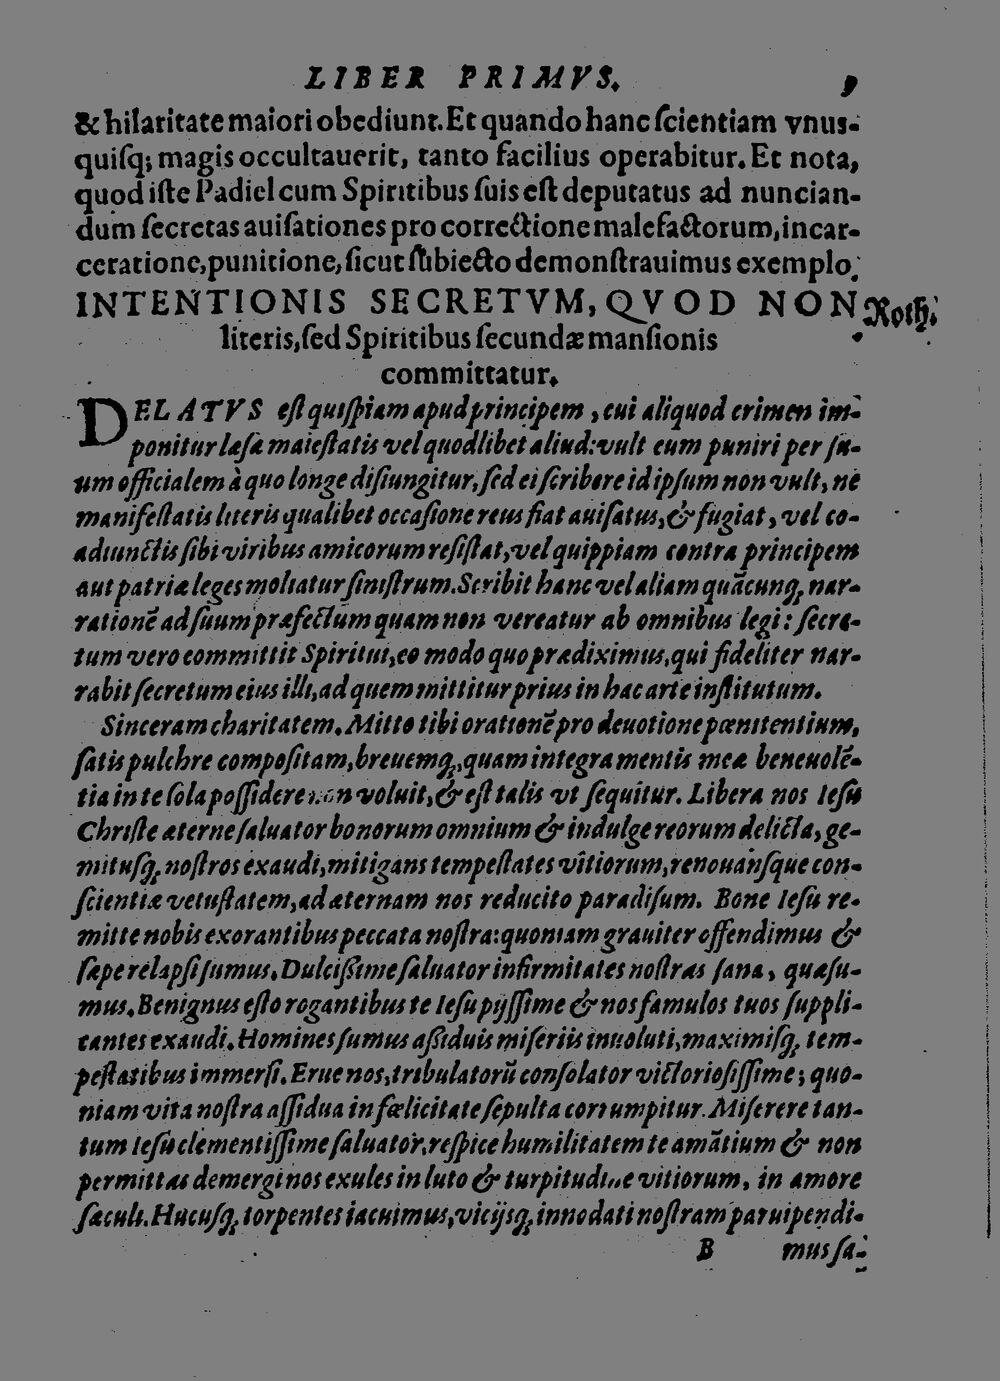 LIBER PRIMVS. 9
& hilaritate maiori obediunt. Et quando hanc ſcientiam vnus-
quiſq; magis occultauerit, tanto facilius operabitur. Et nota,
quod iſte Padiel cum Spiritibus ſuis eſt deputatus ad nuncian-
dum ſecretas auiſationes pro correctione malefactorum, incar-
ceratione, punitione, ſicut ſubiecto demonſtrauimus exemplo.
INTENTIONIS SECRETVM, QVOD NON Roth.
literis, ſed Spiritibus ſecundæ manſionis
committatur.
DELATVS eſt quiſpiam apud principem, cui aliquod crimen im-
ponitur læſæ maieſtatis vel quodlibet aliud: vult eum puniri per ſu-
um officialem à quo longe diſiungitur, ſed ei ſcribere id ipſum non vult, ne
manifeſtatis literis qualibet occaſione reus fiat auiſatus, & fugiat, vel co-
adiunctis ſibi viribus amicorum reſiſtat, vel quippiam contra principem
aut patriæ leges moliatur ſiniſtrum. Scribit hanc vel aliam quācunq; nar-
rationē ad ſuum præfectum quam non vereatur ab omnibus legi: ſecre-
tum vero committit Spiritui, eo modo quo prædiximus, qui fideliter nar-
rabit ſecretum eius illi, ad quem mittitur prius in hac arte inſtitutum.
Sinceram charitatem. Mitto tibi orationē pro deuotione pœnitentium,
ſatis pulchre compoſitam, breuemq;, quam integra mentis meæ beneuolē-
tia in te ſola poſſidere non voluit, & eſt talis vt ſequitur. Libera nos Ieſu
Chriſte æterne ſaluator bonorum omnium & indulge reorum delicta, ge-
mituſq; noſtros exaudi, mitigans tempeſtates vitiorum, renouanſque con-
ſcientiæ vetuſtatem, ad æternam nos reducito paradiſum. Bone Ieſu re-
mitte nobis exorantibus peccata noſtra: quoniam grauiter offendimus &
ſæpe relapſi ſumus. Dulciſsime ſaluator infirmitates noſtras ſana, quæſu-
mus. Benignus eſto rogantibus te Ieſu pijſſime & nos famulos tuos ſuppli-
cantes exaudi. Homines ſumus aſsiduis miſeriis inuoluti, maximiſq; tem-
peſtatibus immerſi. Erue nos, tribulatorū conſolator victorioſiſſime; quo-
niam vita noſtra aſſidua infœlicitate ſepulta corrumpitur. Miſerere tan-
tum Ieſu clementiſſime ſaluator, reſpice humilitatem te amātium & non
permittas demergi nos exules in luto & turpitudine vitiorum, in amore
ſæculi. Hucuſq; torpentes iacuimus, vicijsq; innodati noſtram paruipendi-
B mus ſa-